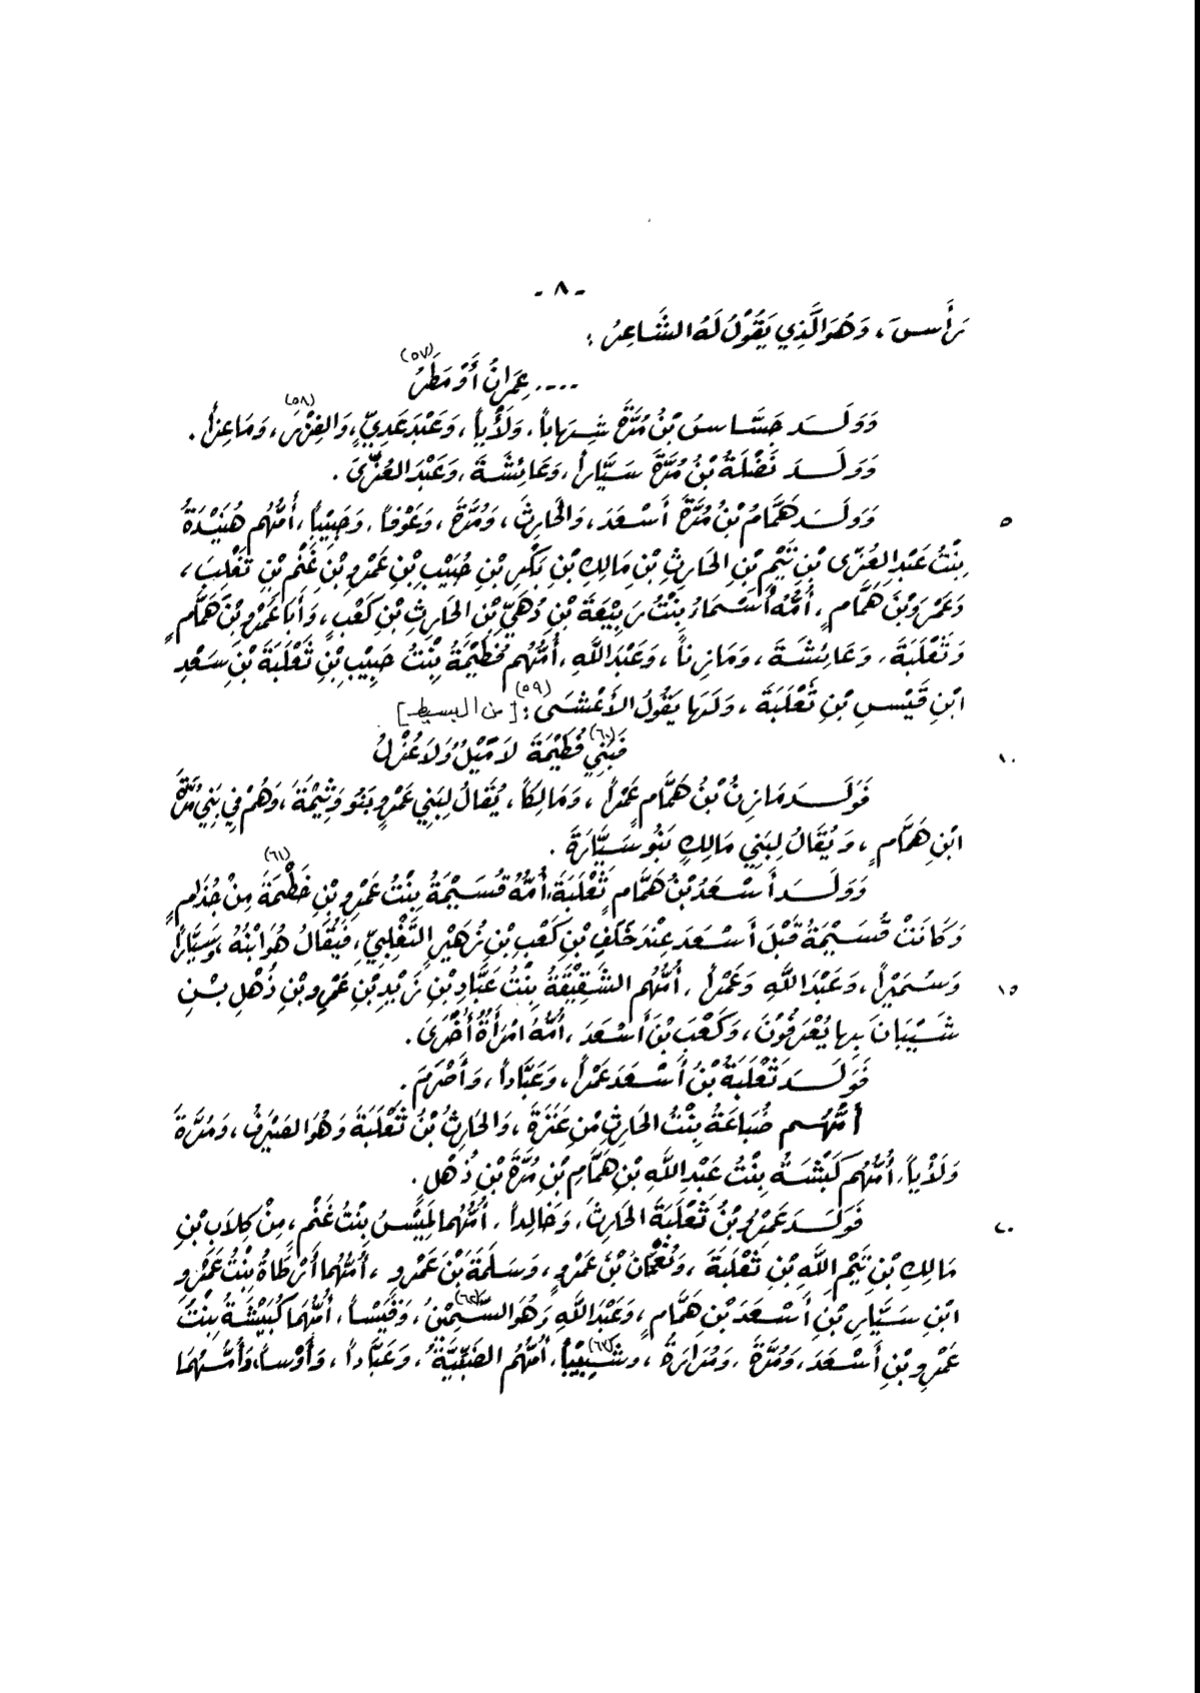 - ٨ -
رَأَسَ، وَهُوَ الَّذِي يَقُولُ لَهُ الشَّاعِرُ :
.... عِمَرانُ أَوْ مَطَرُ (٥٧)
وَوَلَدَ جَسَّاسُ بْنُ مُرَّةَ شِهَاباً، وَلَأْياً، وَعَبْدَ عَدِيٍّ، وَالفِزْرَ (٥٨)، وَمَاعِزاً.
وَوَلَدَ نَضْلَةُ بْنُ مُرَّةَ سَيَّاراً، وَعَائِشَةَ، وَعَبْدَ العُزَّىَ.
وَوَلَدَ هَمَّامُ بْنُ مُرَّةَ أَسْعَدَ، وَالحَارِثَ، وَمُرَّةَ، وَعَوْفاً، وَحَبِيْباً، أُمُّهُم هُنَيْدَةُ ٥
بِنْتُ عَبْدِ العُزَّى بْنِ تَيْمِ بْنِ الحَارِثِ بْنِ مَالِكِ بْنِ بَكْرِ بْنِ حُبَيْبِ بْنِ عَمْرِو بْنِ غَنْمِ بْنِ تَغْلِبَ،
وَعَمْرَو بْنَ هَمَّامٍ، أُمُّهُ أَسْمَاءُ بِنْتُ رَبِيْعَةَ بْنِ دُهَيِّ بْنِ الحَارِثِ بْنِ كَعْبٍ، وَأَبَا عَمْرِو بْنَ هَمَّامٍ
وَثَعْلَبَةَ، وَعَائِشَةَ، وَمَازِناً، وَعَبْدَ اللهِ، أُمُّهُم فُطَيْمَةُ بِنْتُ حَبِيْبِ بْنِ ثَعْلَبَةَ بْنِ سَعْدِ
ابْنِ قَيْسِ بْنِ ثَعْلَبَةَ، وَلَهَا يَقُولُ الأَعْشَى (٥٩): [من البسيط]
فَبَنِي (٦٠) فُطَيْمَةَ لَا مَيْلٌ وَلَا عُزْلُ ١٠
فَوَلَدَ مَازِنُ بْنُ هَمَّامٍ عَمْراً، وَمَالِكاً، يُقَالُ لِبَنِي عَمْرٍو بَنُو وَثِيْمَةَ، وَهُمْ فِي بَنِي مُرَّةَ
ابْنِ هَمَّامٍ، وَيُقَالُ لِبَنِي مَالِكٍ بَنُو سَيَّارَةَ.
وَوَلَدَ أَسْعَدُ بْنُ هَمَّامٍ ثَعْلَبَةَ، أُمُّهُ قُسَيْمَةُ بِنْتُ عَمْرِو بْنِ خَطْمَةَ (٦١) مِنْ جُذَامٍ
وَكَانَتْ قُسَيْمَةُ قَبْلَ أَسْعَدَ عِنْدَ خَلَفِ بْنِ كَعْبِ بْنِ زُهَيْرٍ التَّغْلِبِيِّ، فَيُقَالُ هُوَ ابْنُهُ، وَسَيَّاراً
وَسُمَيْراً، وَعَبْدَ اللَّهِ وَعَمْراً، أُمُّهُم الشَّقِيْقَةُ بِنْتُ عَبَّادِ بْنِ زَيْدِ بْنِ عَمْرِو بْنِ ذُهْلِ بْنِ ١٥
شَيْبَانَ بِهَا يُعْرَفُوْنَ، وَكَعْبَ بْنَ أَسْعَدَ، أُمُّهُ امْرَأَةٌ أُخْرَىَ.
فَوَلَدَ ثَعْلَبَةُ بْنُ أَسْعَدَ عَمْراً، وَعَبَّاداً، وَأَصْرَمَ.
أُمُّهُم ضُبَاعَةُ بِنْتُ الحَارِثِ مِنْ عَنَزَةَ، وَالحَارِثُ بْنُ ثَعْلَبَةَ وَهُوَ الصَّيْرَفُ، وَمُرَّةَ
وَلَأْياً، أُمُّهُم كَبْشَةُ بِنْتُ عَبْدِ اللَّهِ بْنِ هَمَّامِ بْنِ مُرَّةَ بْنِ ذُهْلٍ.
فَوَلَدَ عَمْرُو بْنُ ثَعْلَبَةَ الحَارِثَ، وَخَالِداً، أُمُّهُما لَمِيْسُ بِنْتُ غَنْمٍ، مِنْ كِلَابِ بْنِ ٢٠
مَالِكِ بْنِ تَيْمِ اللَّهِ بْنِ ثَعْلَبَةَ، وَنُعْمَانَ بْنَ عَمْرٍو، وَسَلَمَةَ بْنَ عَمْرٍو، أُمُّهُما أَرْطَاةُ بِنْتُ عَمْرِو
ابْنِ سَيَّارِ بْنِ أَسْعَدَ بْنِ هَمَّامٍ، وَعَبْدَ اللَّهِ وَهُوَ السَّمِيْنُ (٦٢)، وَقَيْساً، أُمُّهُمَا كُبَيْشَةُ بِنْتُ
عَمْرِو بْنِ أَسْعَدَ، وَمُرَّةَ، وَمُرَارَةَ، وشَبِيْباً (٦٣)، أُمُّهُم الضَّبِّيَّةُ، وَعَبَّاداً، وَأَوْساً، وَأُمُّهُمَا